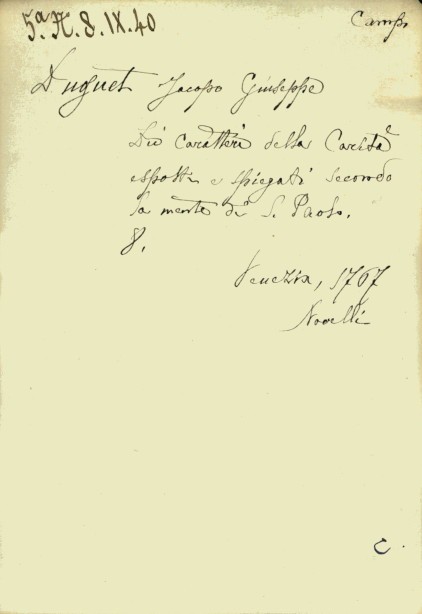 5ª.H.8.IX.40
Camp.
Duguet Jacopo Giuseppe
Dei caratteri della Carità
esposti e spiegati secondo
la mente di S. Paolo.
8.
Venezia, 1767
Novelli
C.